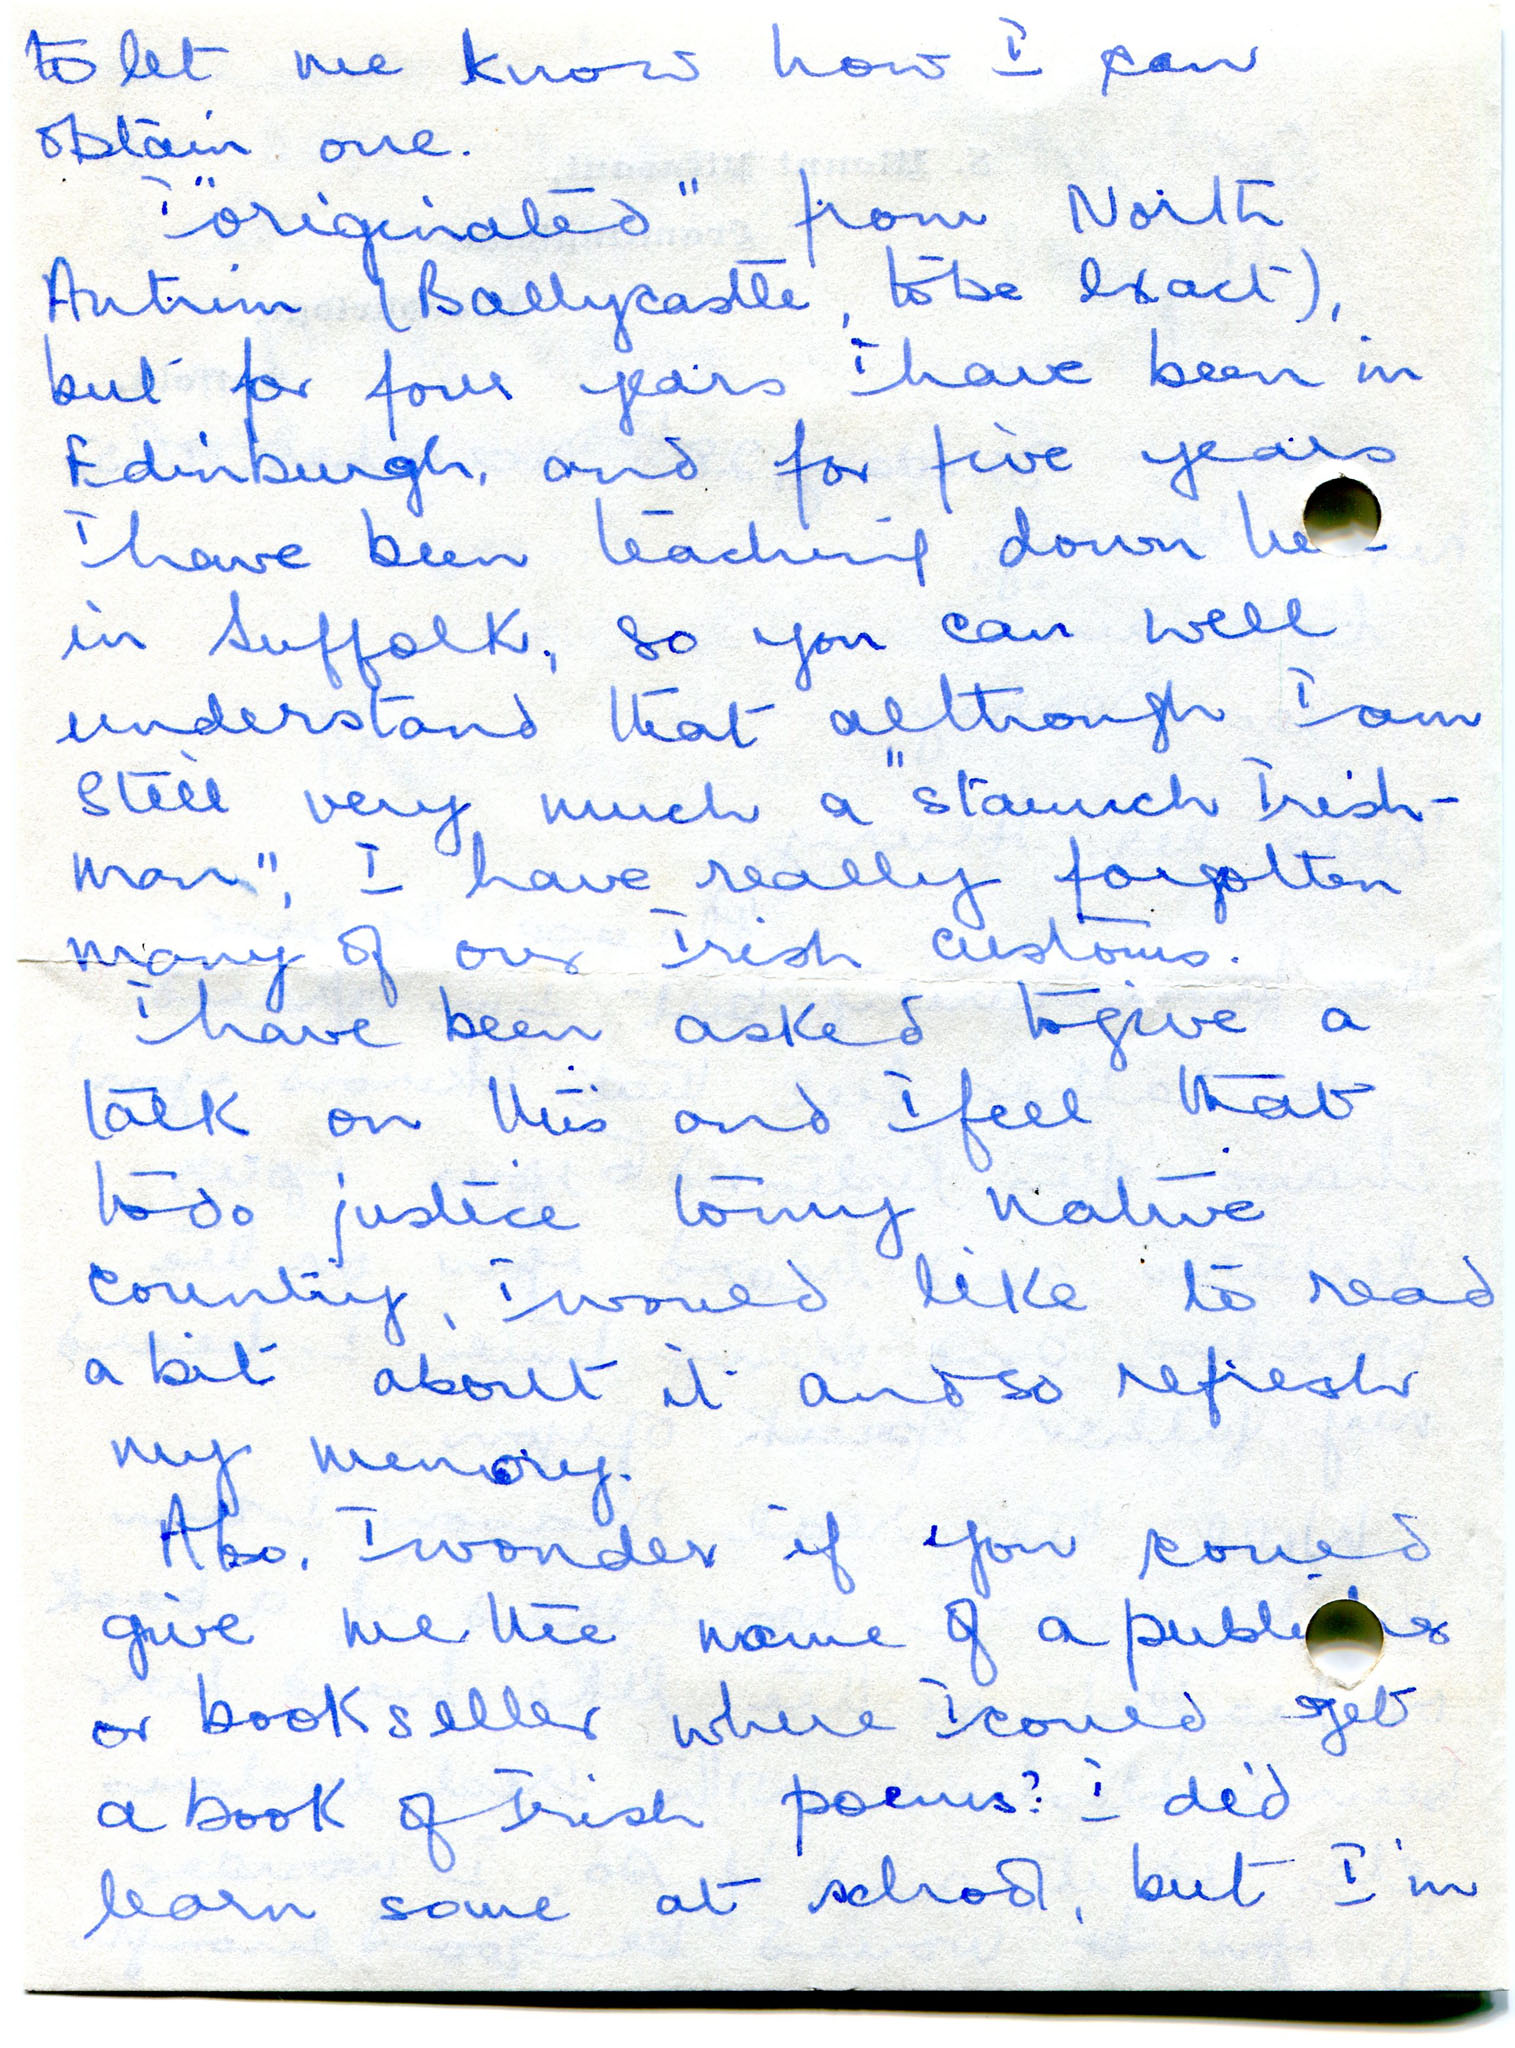 to let me know how I can
obtain one.
I "originated" from North
Antrim (Ballycastle, to be exact),
but for four years I have been in
Edinburgh, and for five years
I have been teaching down here
in Suffolk, so you can well
understand that although I am
still very much a "staunch Irish-
man", I have really forgotten
many of our Irish customs.
I have been asked to give a
talk on this and I feel that
to do justice to my native
country, I would like to read
a bit about it and so refresh
my memory.
Also, I wonder if you could
give me the name of a publisher
or bookseller where I could get
a book of Irish poems? I did
learn some at school, but I'm